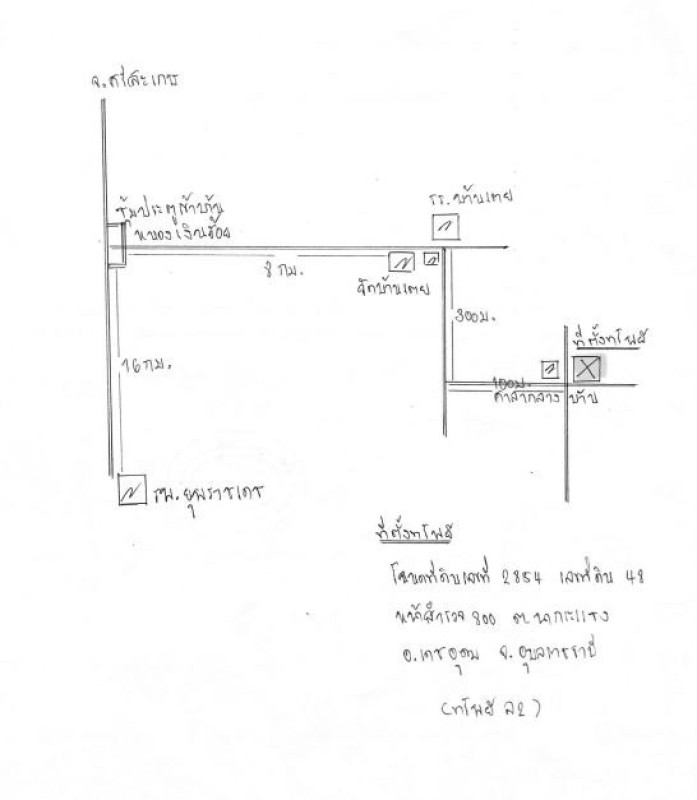 จ.ศรีสะเกษ
ซุ้มประตูเข้าบ้าน
หนองเงินฮ้อย
รร.บ้านเตย
8 กม.
วัดบ้านเตย
300ม.
ที่ตั้งทรัพย์
16 กม.
100ม.
ศาลากลางบ้าน
รพ.ยุพราชเดช
ที่ตั้งทรัพย์
โฉนดที่ดินเลขที่ 2854 เลขที่ดิน 48
หน้าสำรวจ 300 ต.นากระแซง
อ.เดชอุดม จ.อุบลราชธานี
(ทรัพย์ ล2)